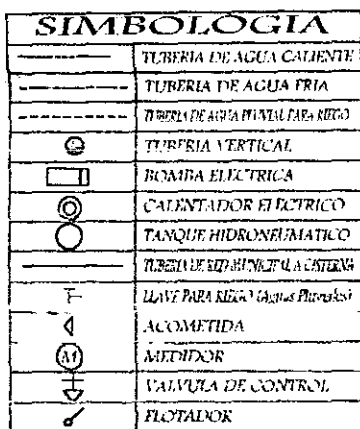 SIMBOLOGIA
TUBERIA DE AGUA CALIENTE
TUBERIA DE AGUA FRIA
TUBERIA DE AGUA PLUVIAL PARA RIEGO
TUBERIA VERTICAL
BOMBA ELECTRICA
CALENTADOR ELECTRICO
TANQUE HIDRONEUMATICO
TUBERIA DE RED MUNICIPAL A CISTERNA
LLAVE PARA RIEGO (Aguas Pluviales)
ACOMETIDA
M MEDIDOR
VALVULA DE CONTROL
FLOTADOR